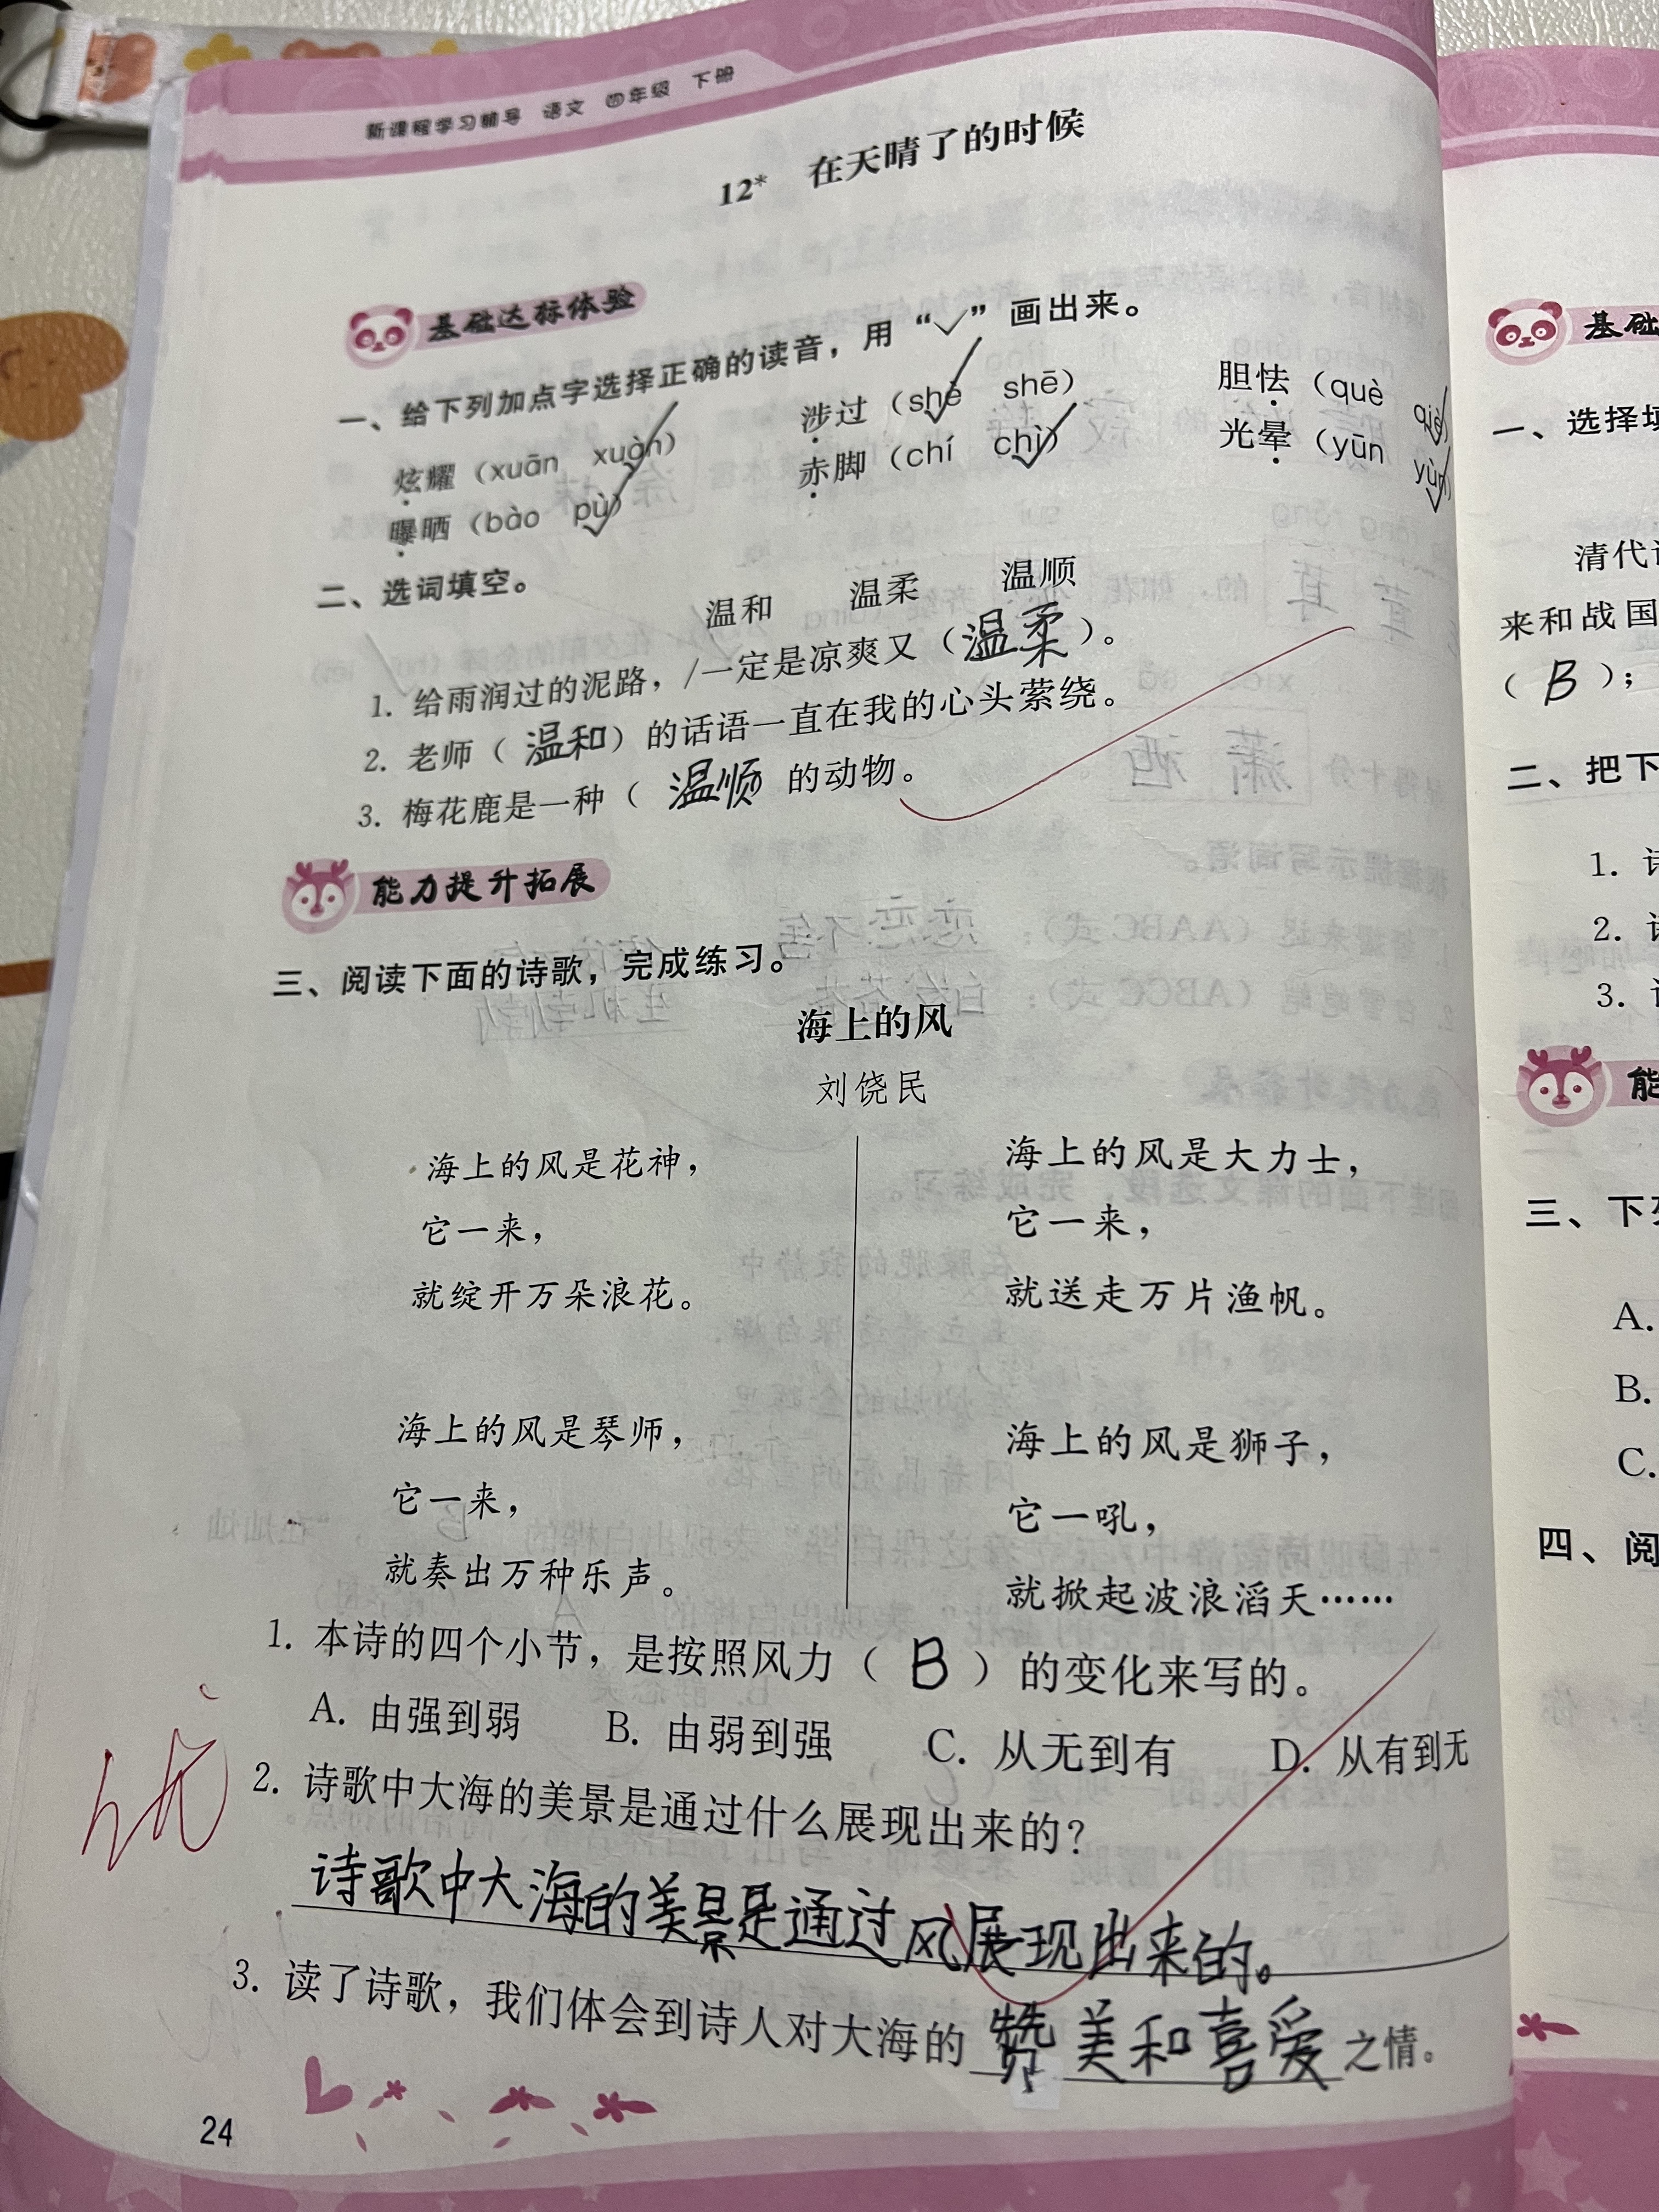 新课程学习辅导 语文 四年级 下册
12* 在天晴了的时候
基础达标体验
一、给下列加点字选择正确的读音，用“✓”画出来。
炫耀（xuān xuàn） 涉过（shè shē） 胆怯（què qiè）
曝晒（bào pù） 赤脚（chí chì） 光晕（yūn yùn）
二、选词填空。
温和 温柔 温顺
1. 给雨润过的泥路，/一定是凉爽又（温柔）。
2. 老师（温和）的话语一直在我的心头萦绕。
3. 梅花鹿是一种（温顺 的动物。
能力提升拓展
三、阅读下面的诗歌，完成练习。
海上的风
刘饶民
海上的风是花神，
它一来，
就绽开万朵浪花。
海上的风是琴师，
它一来，
就奏出万种乐声。
海上的风是大力士，
它一来，
就送走万片渔帆。
海上的风是狮子，
它一吼，
就掀起波浪滔天……
1. 本诗的四个小节，是按照风力（B）的变化来写的。
A. 由强到弱 B. 由弱到强 C. 从无到有 D. 从有到无
2. 诗歌中大海的美景是通过什么展现出来的？
诗歌中大海的美景是通过风展现出来的。
3. 读了诗歌，我们体会到诗人对大海的赞美和喜爱之情。
优
24
基础
一、选择填
清代
来和战国
（B）；
二、把下
1.
2.
3.
能
三、下
A.
B.
C.
四、阅